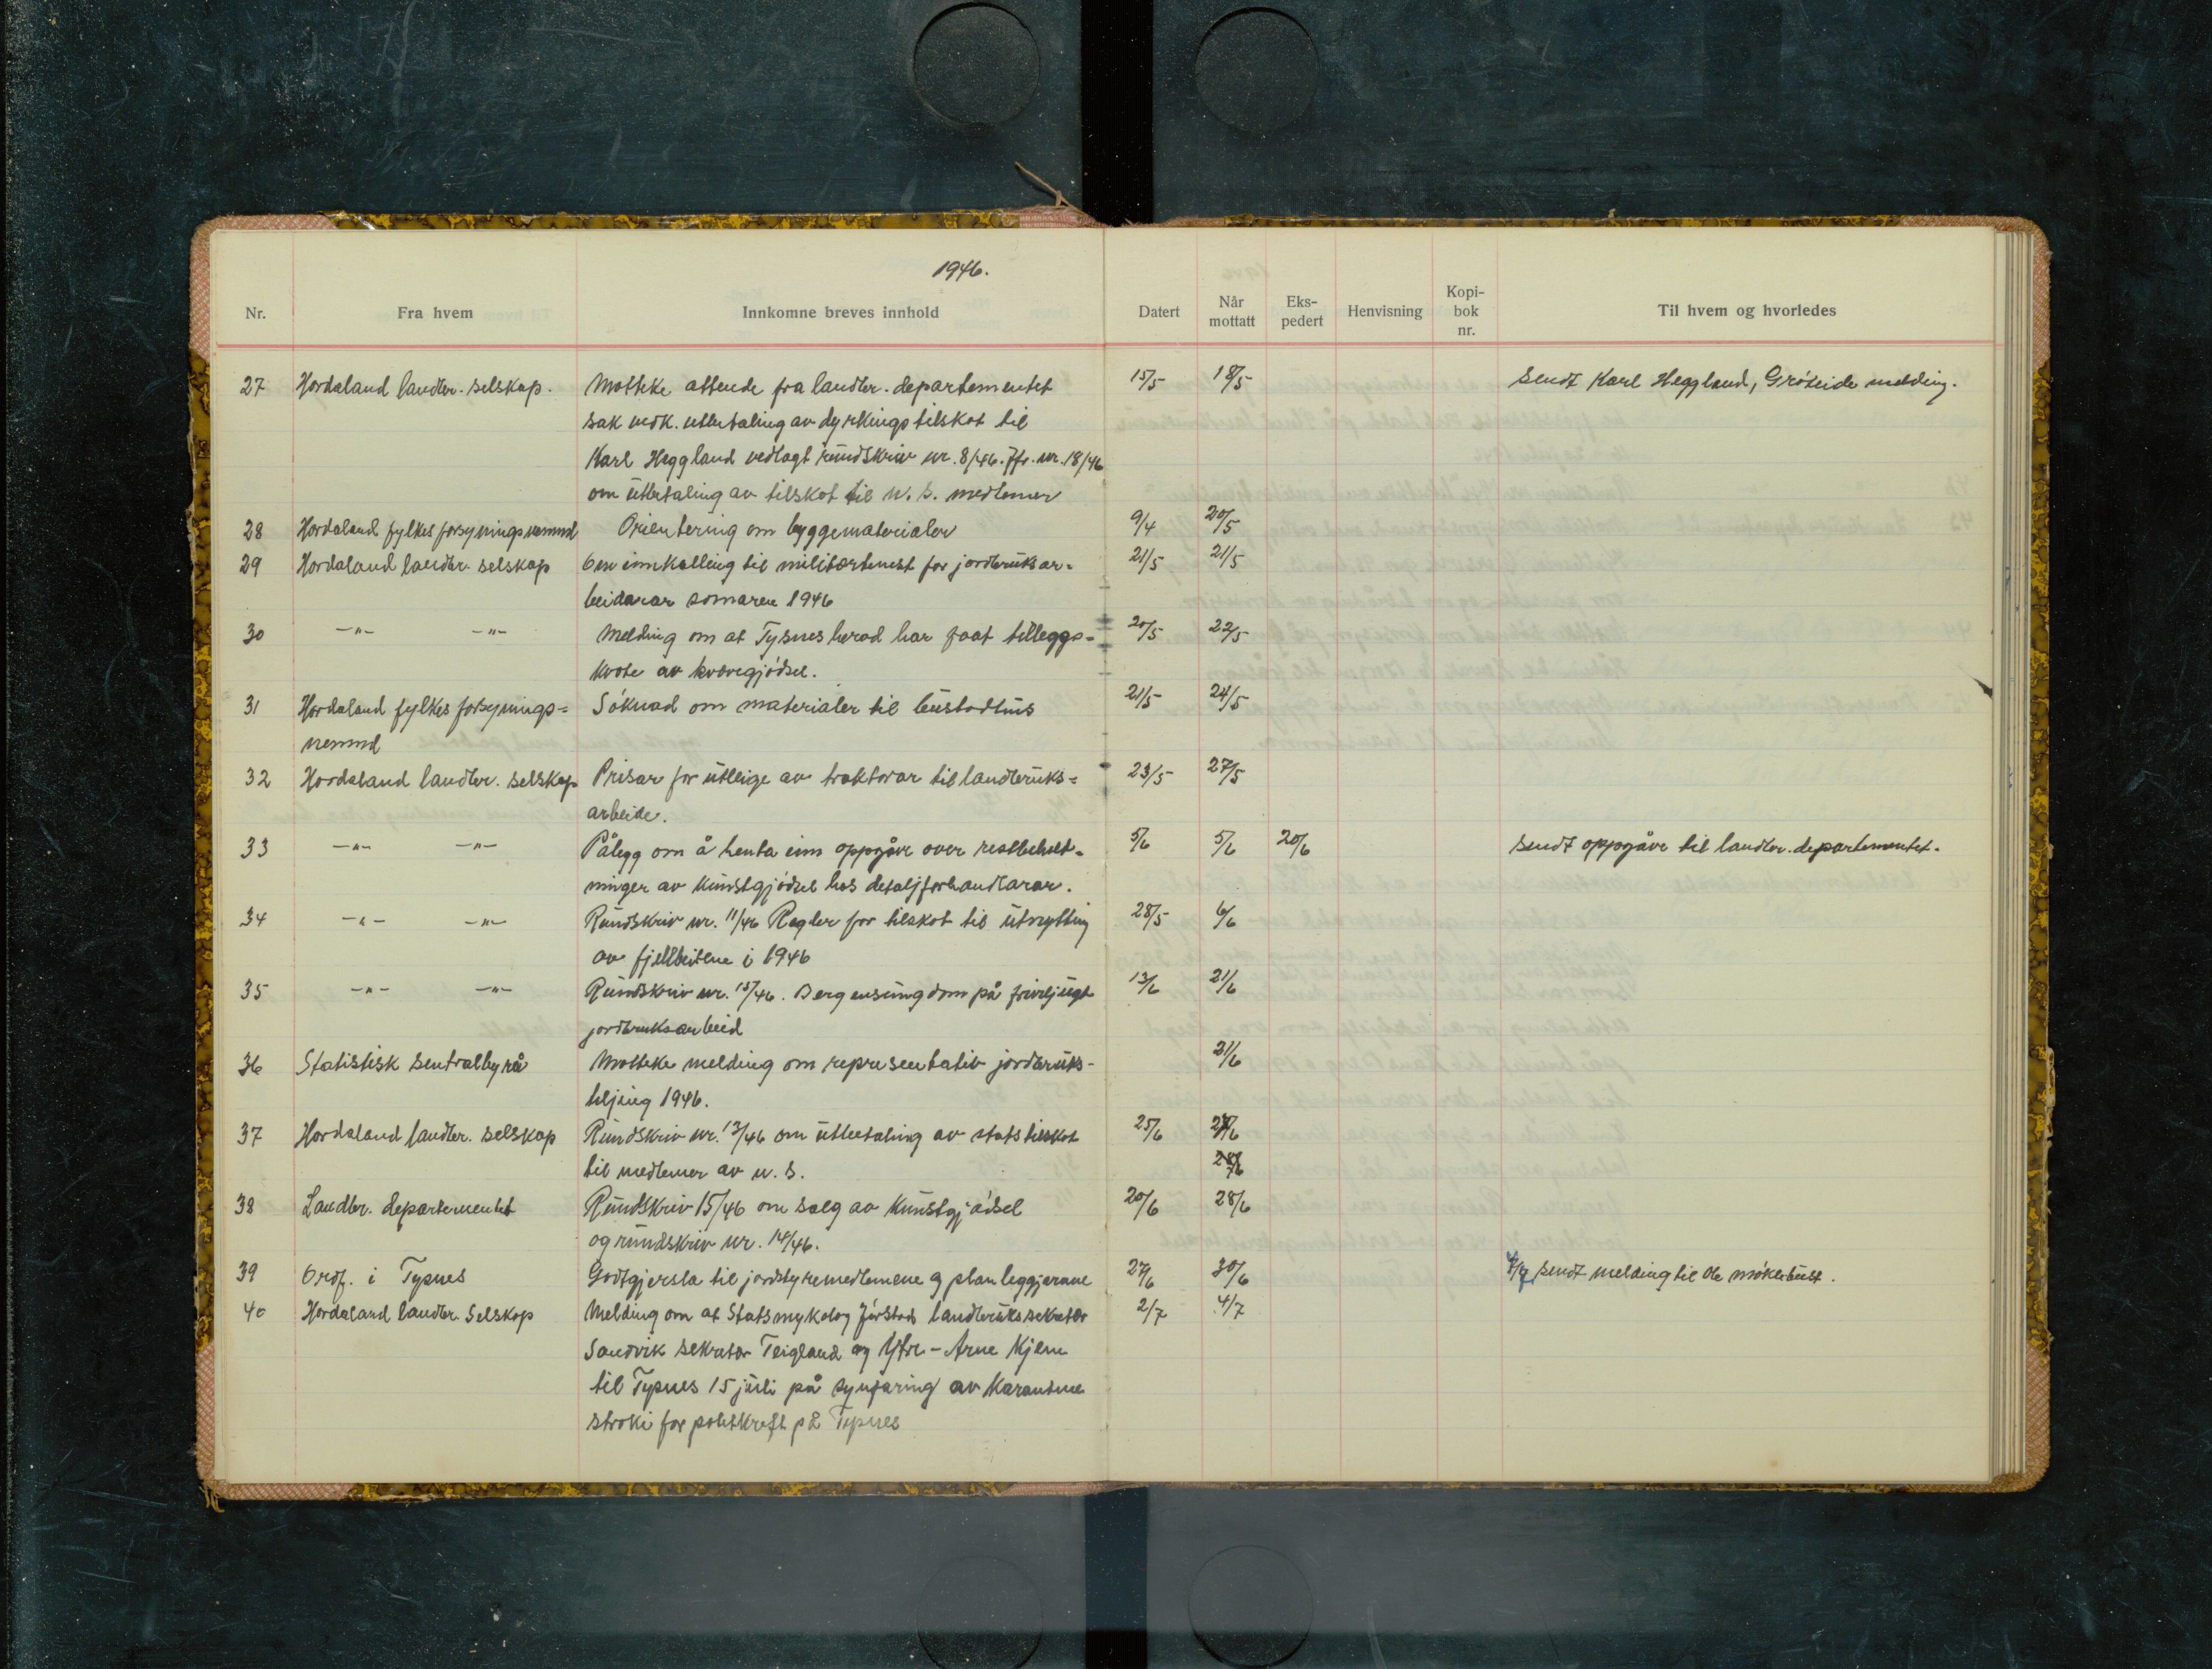 1946.
Nr. Fra hvem Innkomne breves innhold Datert Når mottatt Eks- pedert Henvisning Kopi- bok nr. Til hvem og hvorledes
27 Hordaland landbr. selskap. Motteke attende fra landbr. departementet 15/5 18/5 Sendt Karl Heggland, Gröteide melding.
sak vedk. utbetaling av dyrkingstilskot til
Karl Heggland vedlagt rundskriv nr. 8/46. Jfr. nr. 18/46
om utbetaling av tilskot til N.S. medlemer
28 Hordaland fylkes forsyningsnemnd Orientering om byggematerialer 9/4 20/5
29 Hordaland landbr. selskap Om innkalling til militærtenest for jordbruksar= 21/5 21/5
beidarar somaren 1946
30 -"- -"- Melding om at Tysnes herad har faat tilleggs= 20/5 22/5
kvote av kvævegjödsel.
31 Hordaland fylkes forsynings= Söknad om materialer til bustadhus 21/5 24/5
nemnd
32 Hordaland landbr. selskap Prisar for utleige av traktorar til landbruks= 23/5 27/5
arbeide.
33 -"- -"- Pålegg om å henta inn oppgåve over restbehold= 5/6 5/6 20/6 Sendt oppgåve til landbr. departementet.
ninger av kunstgjödsel hos detaljforhandlarar.
34 -"- -"- Rundskriv nr. 11/46 Regler for tilskot til utnytting 28/5 6/6
av fjellbeitene i 1946
35 -"- -"- Rundskriv nr. 15/46. Bergensungdom på friviljugt 13/6 21/6
jordbruksarbeid
36 Statistisk sentralbyrå Motteke melding om representativ jordbruks- 21/6
teljing 1946.
37 Hordaland landbr. selskap Rundskriv nr. 13/46 om utbetaling av statstilskot 25/6
til medlemer av N.S.
38 Landbr. departementet Rundskriv 15/46 om salg av kunstgjödsel 20/6 28/6
og rundskriv nr. 14/46.
39 Ordf. i Tysnes Godtgjersla til jordstyremedlemene og planleggjarane 27/6 30/6 4/7 sendt melding til Ole Möklebust.
40 Hordaland landbr. Selskap Melding om at Statsmykolog Jörstad landbrukssekretær 2/7 4/7
Sandvik sekretær Teigland og Arne Kjem
til Tysnes 15 juli på synfaring av karantene
stroki for potetkreft på Tysnes